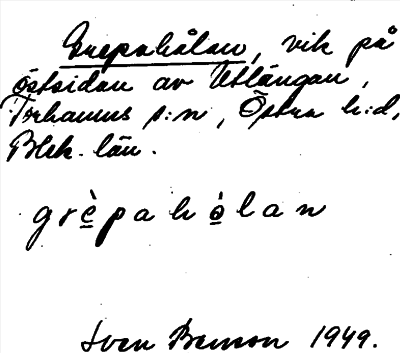 Grepahålan, vik på
östsidan av Utlängan,
Torhamns s:n, Östra h:d,
Blek. län.
grè̱pahò̱lan
Sven Benson 1949.